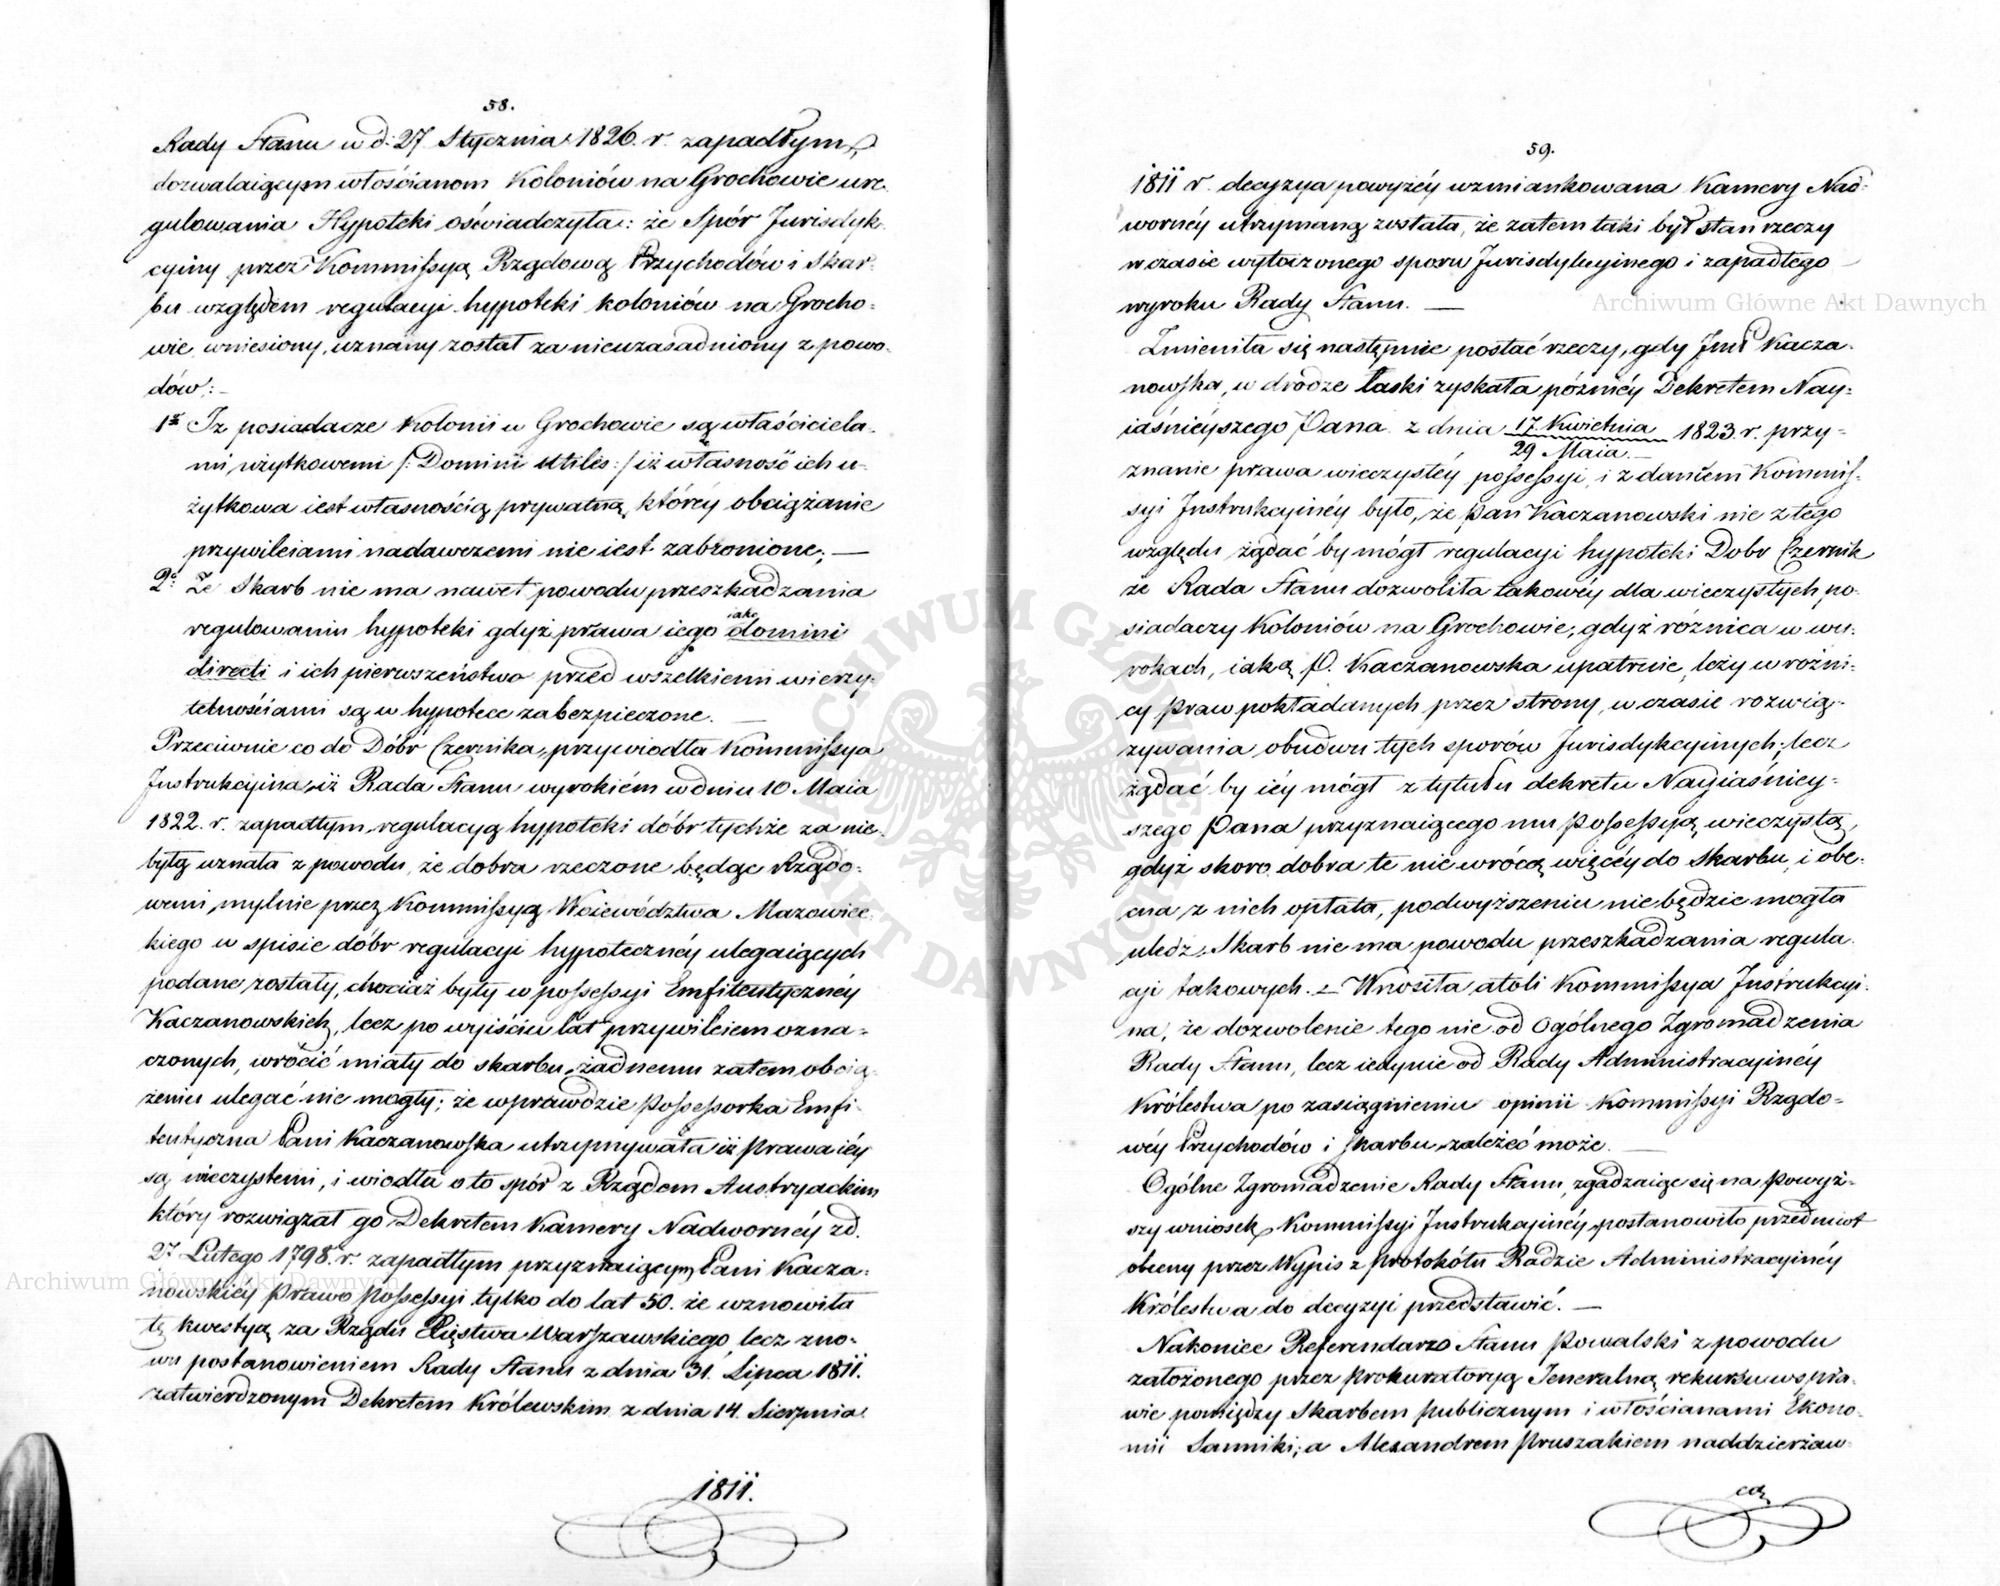 58.
Rady Stanu w d: 27 Stycznia 1826. r. zapadłym,
dozwalaiącym włościanom Koloniów na Grochowie ure-
gulowania Hypoteki oświadczyła: że Spór Jurisdyk-
cyiny przez Kommissyą Rządową Przychodów i Skar-
bu względem regulacyi hypoteki koloniów na Grocho-
wie wniesiony, uznany został za nieuzasadniony z powo-
dów: —
1º Iż posiadacze Kolonii w Grochowie są właściciela-
mi użytkowemi /: Domini utiles :/ iż własność ich u-
żytkowa iest własnością prywatną, którey obciążanie
przywileiami nadawczemi nie iest zabronione; —
2º Że Skarb nie ma nawet powodu przeszkadzania
regulowaniu hypoteki gdyż prawa iego iako domini
directi i ich pierwszeństwo przed wszelkiemi wierzy-
telnościami są w hypotece zabezpieczone. —
Przeciwnie co do Dóbr Czernika, przywiodła Kommissya
Instrukcyina, iż Rada Stanu wyrokiém w dniu 10 Maia
1822. r. zapadłym, regulacyą hypoteki dóbr tychże za nie-
byłą uznała z powodu, że dobra rzeczone będąc Rządo-
wemi, mylnie przez Kommissyą Województwa Mazowiec-
kiego w spisie dóbr regulacyi hypoteczney ulegaiących
podane zostały, chociaż były w possessyi Emfiteutycznéy
Kaczanowskich, lecz po wyiściu lat przywileiem ozna-
czonych, wrócić miały do skarbu, żadnemu zatem obcią-
żeniu ulegać nie mogły; że wprawdzie Possessorka Emfi-
teutyczna Pani Kaczanowska utrzymywała iż Prawa iéy
są wieczystemi, i wiodła o to spór z Rządem Austryackim
który rozwiązał go Dekretem Kamery Nadwornéy z d.
27 Lutego 1798. r. zapadłym przyznaiącym Pani Kacza-
nowskiéy Prawo Possessyi tylko do lat 50. że wznowiła
tę kwestyą za Rządu Xięstwa Warszawskiego, lecz zno-
wu postanowieniem Rady Stanu z dnia 31. Lipca 1811.
zatwierdzonym Dekretem Królewskim z dnia 14. Sierpnia
1811.
59.
1811 r. decyzya powyżéy wzmiankowana Kamery Nad-
wornéy utrzymaną została, że zatem taki był stan rzeczy
w czasie wytoczonego sporu Jurisdykcyinego i zapadłego
wyroku Rady Stanu. —
Zmieniła się następnie postać rzeczy, gdy Jmć Kacza-
nowska, w drodze łaski zyskała późniéy Dekretem Nay-
iaśnieyszego Pana z dnia 17. Kwietnia 1823. r. przy-
29 Maia
znanie prawa wieczystéy possessyi, i zdaniem Kommis-
syi Instrukcyinéy było, że Pan Kaczanowski nie z tego
względu żądać by mógł regulacyi hypoteki Dobr Czernik
że Rada Stanu dozwoliła takowéy dla wieczystych po-
siadaczy Koloniów na Grochowie, gdyż różnica w wy-
rokach, iaką P. Kaczanowska upatruie, leży w rożni-
cy Praw pokładanych przez strony, w czasie rozwią-
zywania obudwu tych sporów Jurisdykcyinych; lecz
żądać by iéy mógł z tytułu dekretu Nayiaśniey-
szego Pana przyznaiącego mu Possessyą wieczystą,
gdyż skoro dobra te nie wrócą więcéy do Skarbu, i obe-
cna z nich opłata, podwyższeniu nie będzie mogła
uledz, Skarb nie ma powodu przeszkadzania regula-
cyi takowych. — Wnosiła atoli Kommissya Instrukcyi-
na, że dozwolenie tego nie od Ogólnego Zgromadzenia
Rady Stanu, lecz iedynie od Rady Administracyinéy
Królestwa po zasiągnieniu opinii Kommissyi Rządo-
wéy Przychodów i Skarbu, zależeć może. —
Ogólne Zgromadzenie Rady Stanu, zgadzaiąc się na Powyż-
szy wniosek, Kommissyi Instrukcyinéy, postanowiło przedmiot
obecny przez Wypis z Protokółu Radzie Administracyinéy
Królestwa do decyzyi przedstawić. —
Nakoniec Referendarz Stanu Powalski z powodu
założonego przez Prokuratoryą Jeneralną rekursu w spra-
wie pomiędzy Skarbem Publicznym i włościanami Ekono-
mii Sanniki, a Alexandrem Pruszakiem naddzierżaw-
cą
Archiwum Główne Akt Dawnych
Archiwum Główne Akt Dawnych
ARCHIWUM GŁÓWNE AKT DAWNYCH